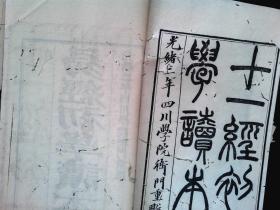 十一經初
學讀本
光緒三年四川學院衙門重雕